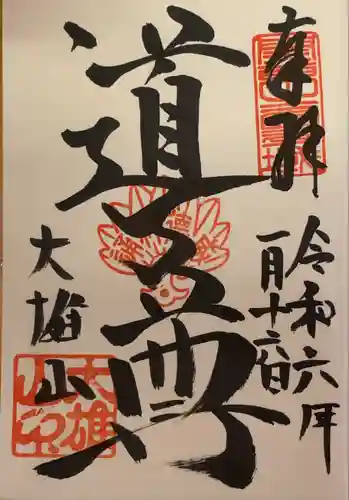 奉拝
令和六年
一月十六日
道了尊
大雄山